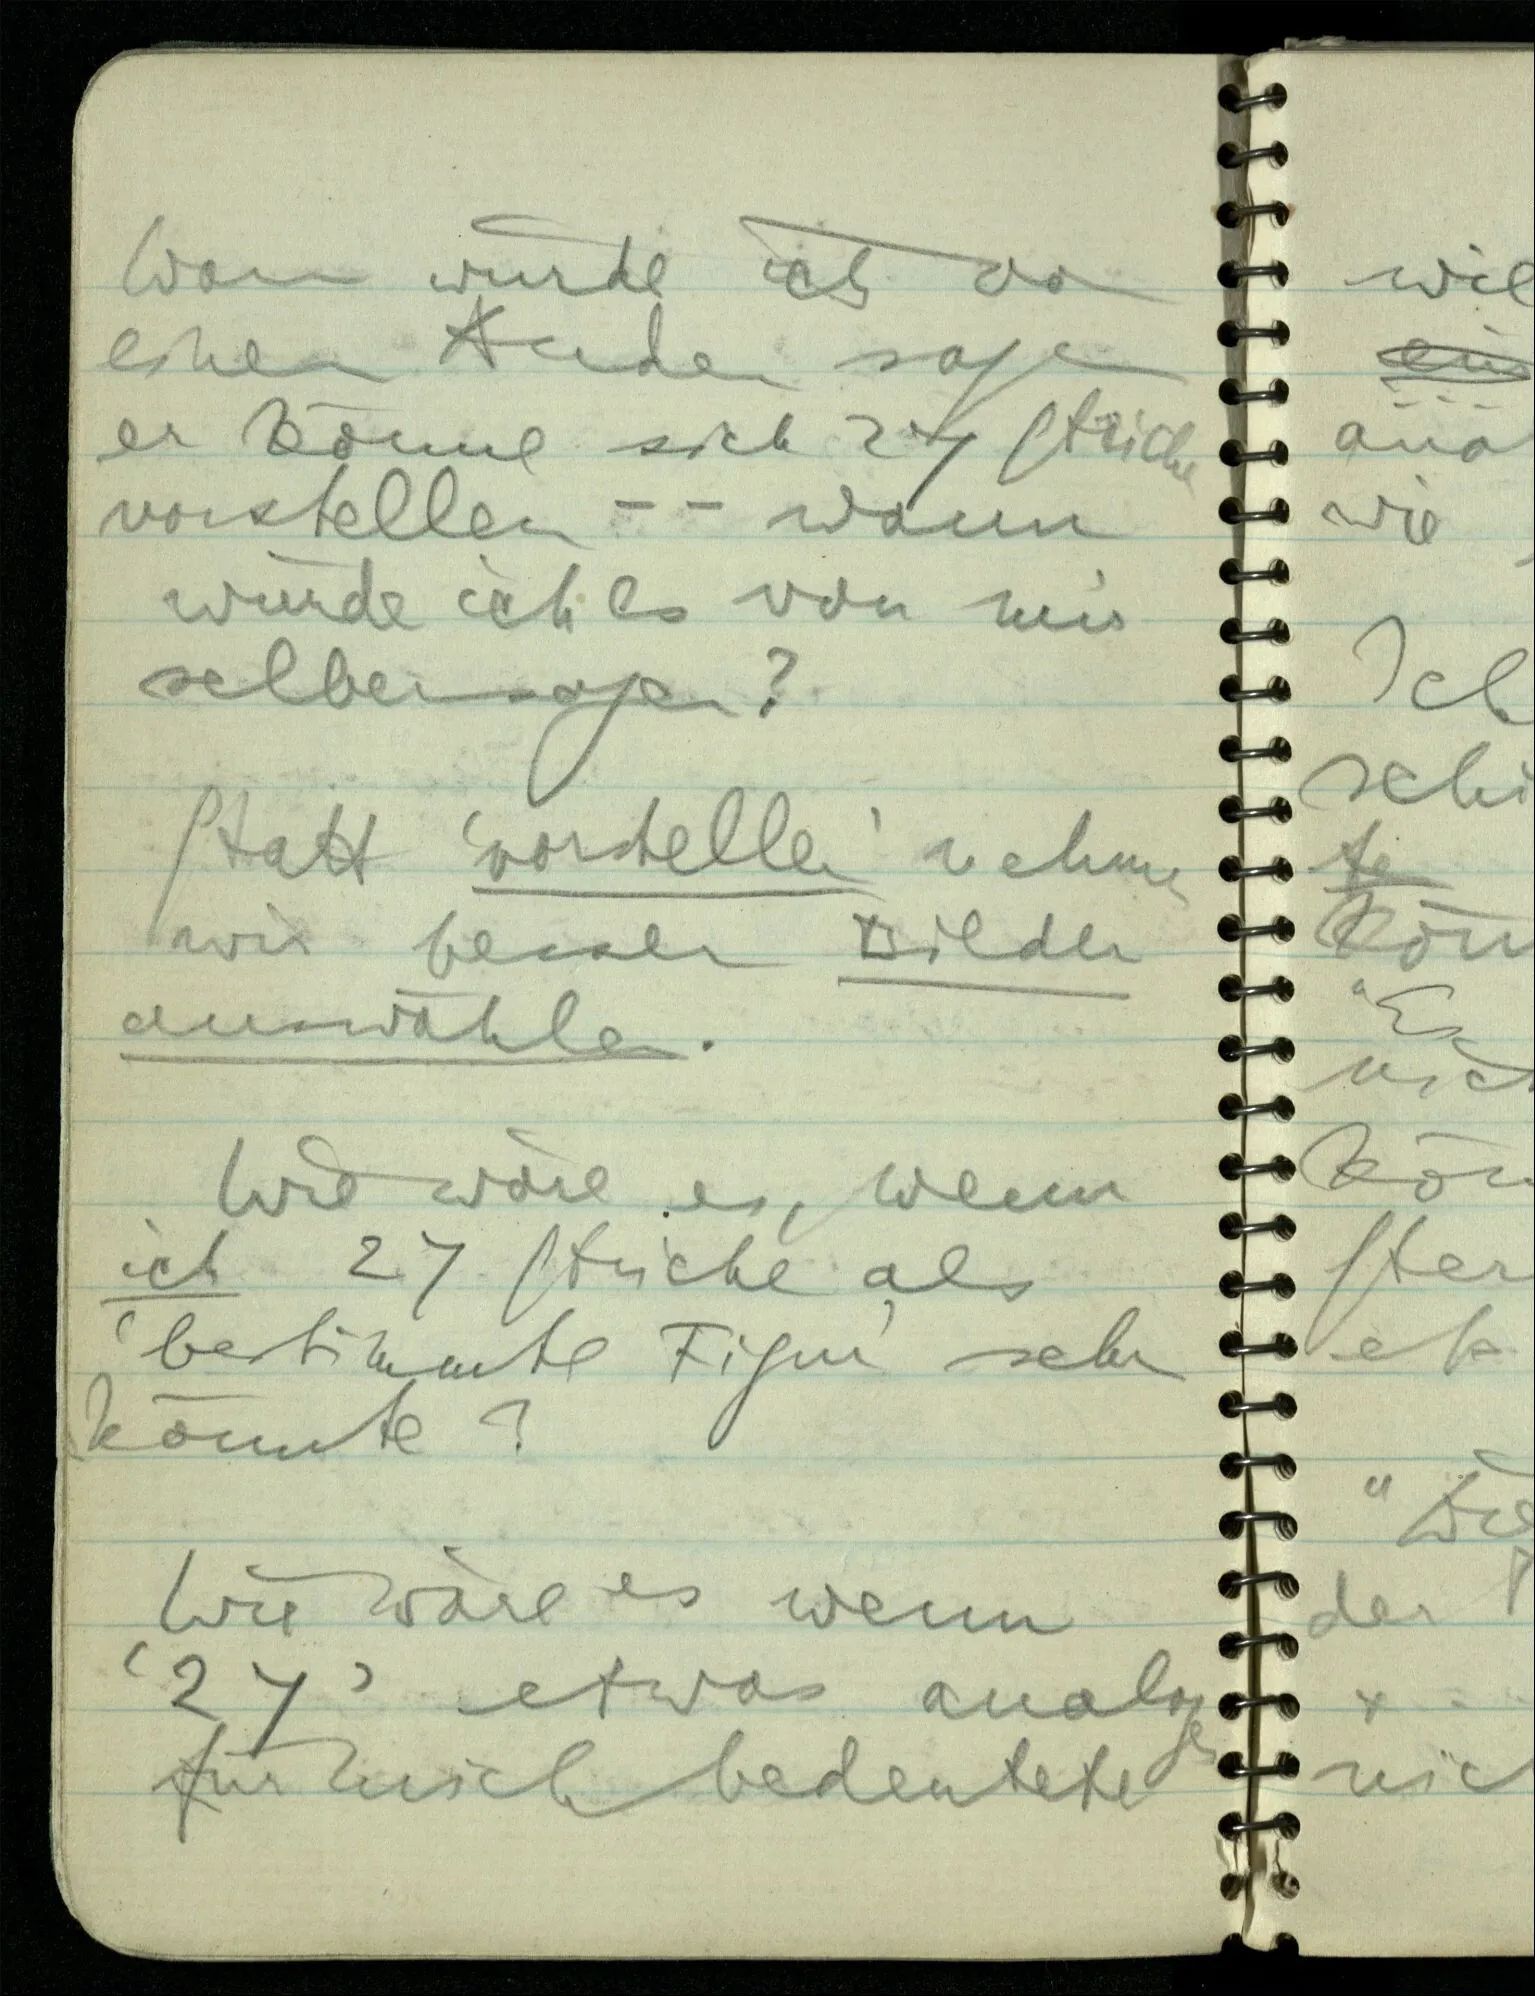 Wann würde ich von
einem Andern sagen
er könne sich 27 Striche
vorstellen -- wann
würde ich es von mir
selber sagen?
Statt 'vorstellen' nehmen
wir besser Bilder
auswählen.
Wie wäre es, wenn
ich 27 Striche als
'bestimmte Figur' sehen
könnte?
Wie wäre es wenn
'27' etwas analoges
für mich bedeutete
wie
ein
wie
Ich
te
"Es
"Wie
der